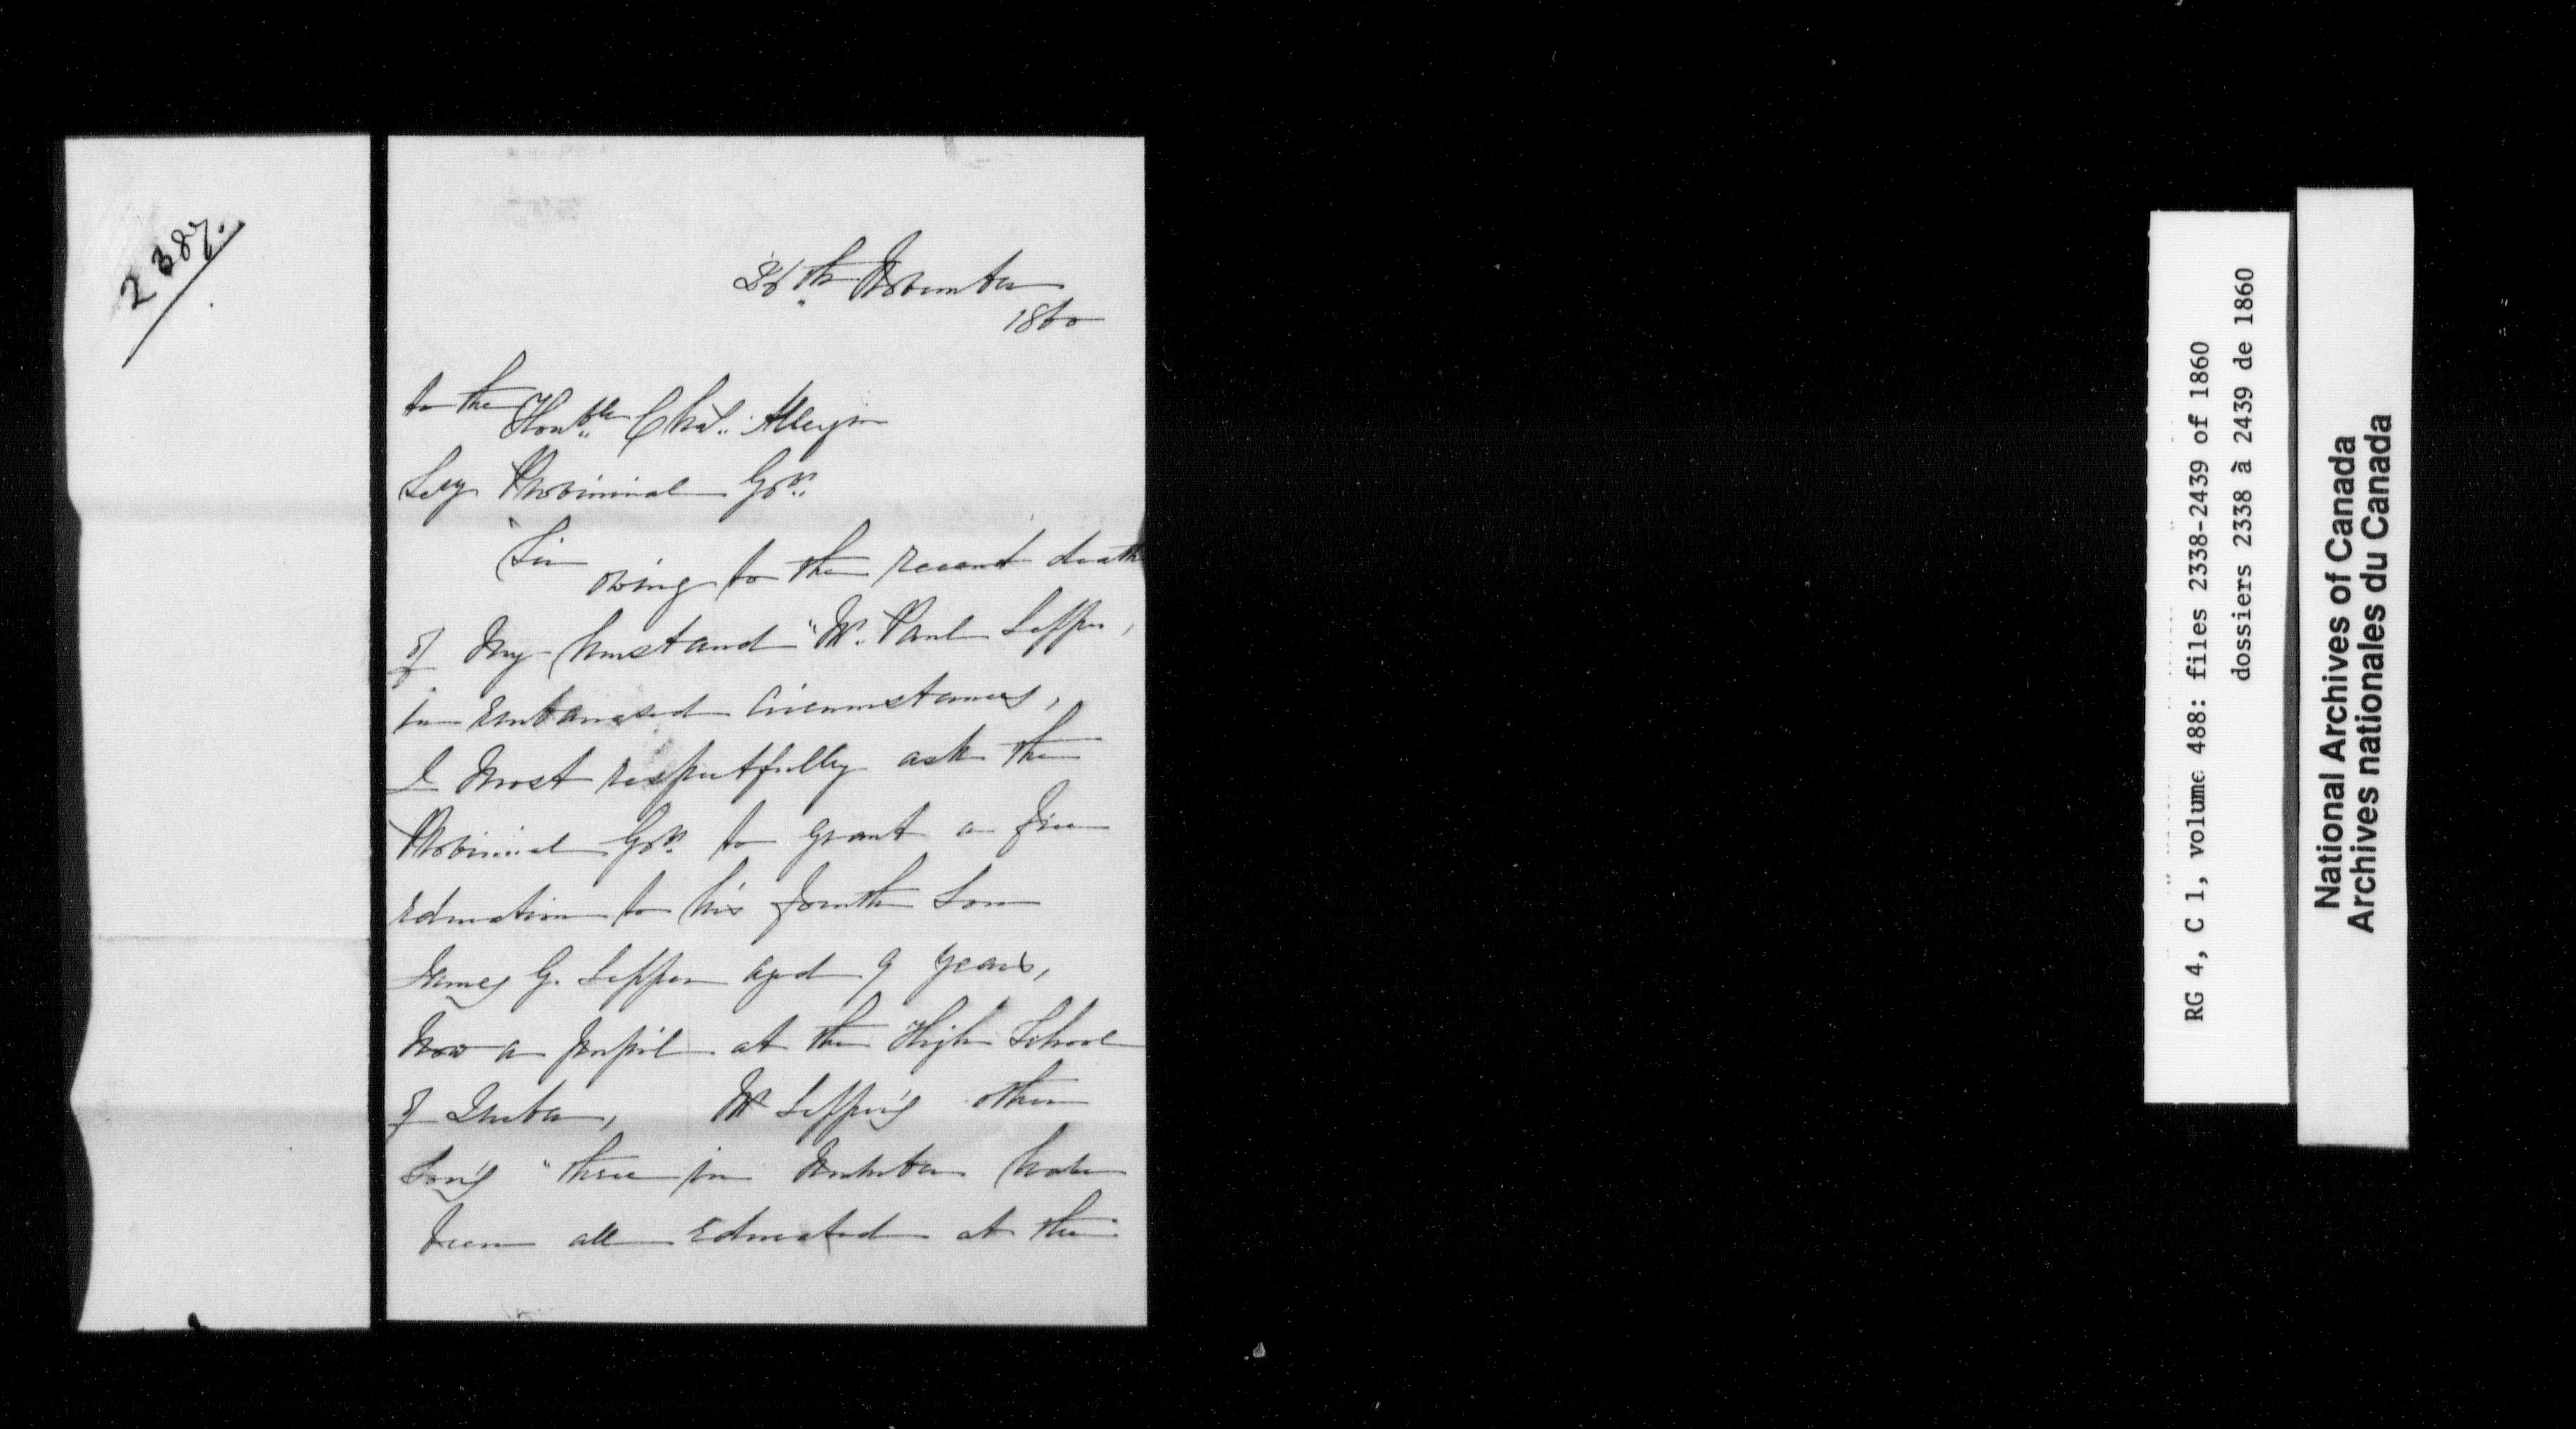 2387.
26th November
1860
to the
Honble Chas. Alleyn
Secy Provincial Govt.
Sir
owing to the recent death
of My husband "Mr. Paul Lepper,
in Embarrased Circumstances,
I Most respectfully ask the
Provincial Govt. to grant a free
Education to his fourth Son
James G. Lepper aged 9 years,
Now a pupil at the High School
of Quebec, Mr Lepper's other
Son's "three in Number have
been all Educated at the
RG 4, C 1, volume 488: files 2338-2439 of 1860
dossiers 2338 à 2439 de 1860
National Archives of Canada
Archives nationales du Canada